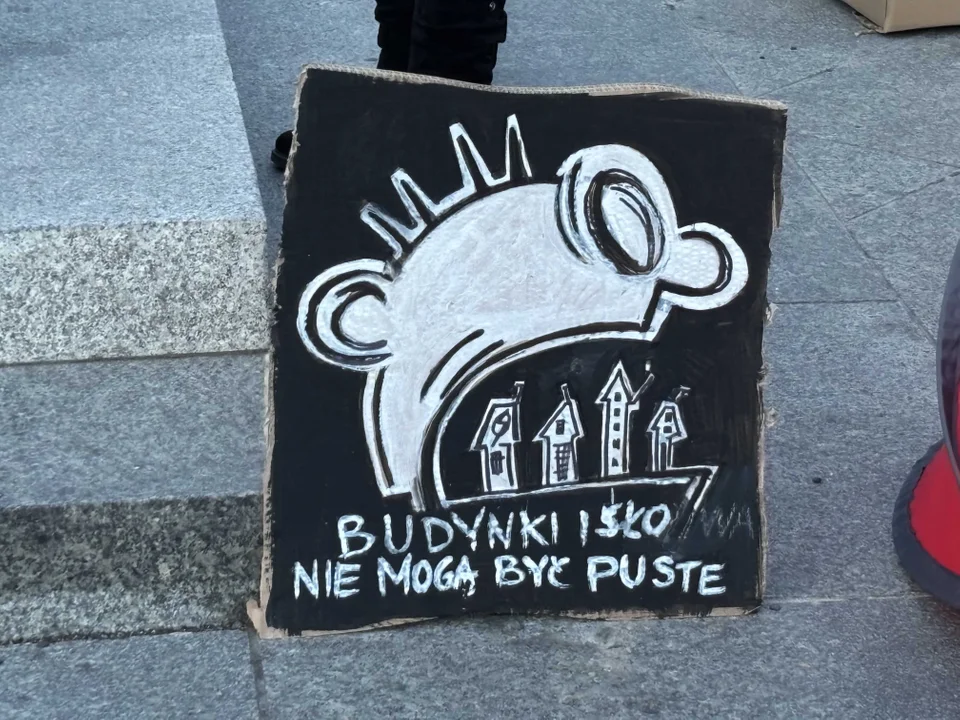 BUDYNKI I SŁOWA
NIE MOGĄ BYĆ PUSTE